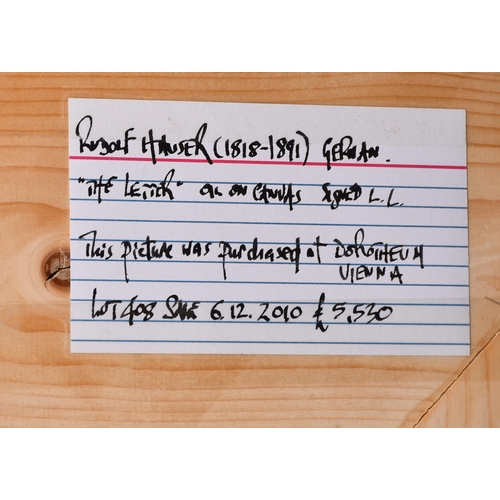 RUDOLF HAUSER (1818-1891) GERMAN.
"THE LETTER" OIL ON CANVAS SIGNED L.L.
This picture was purchased at DOROTHEUM
VIENNA
LOT 408 SALE 6.12.2010 £5,530